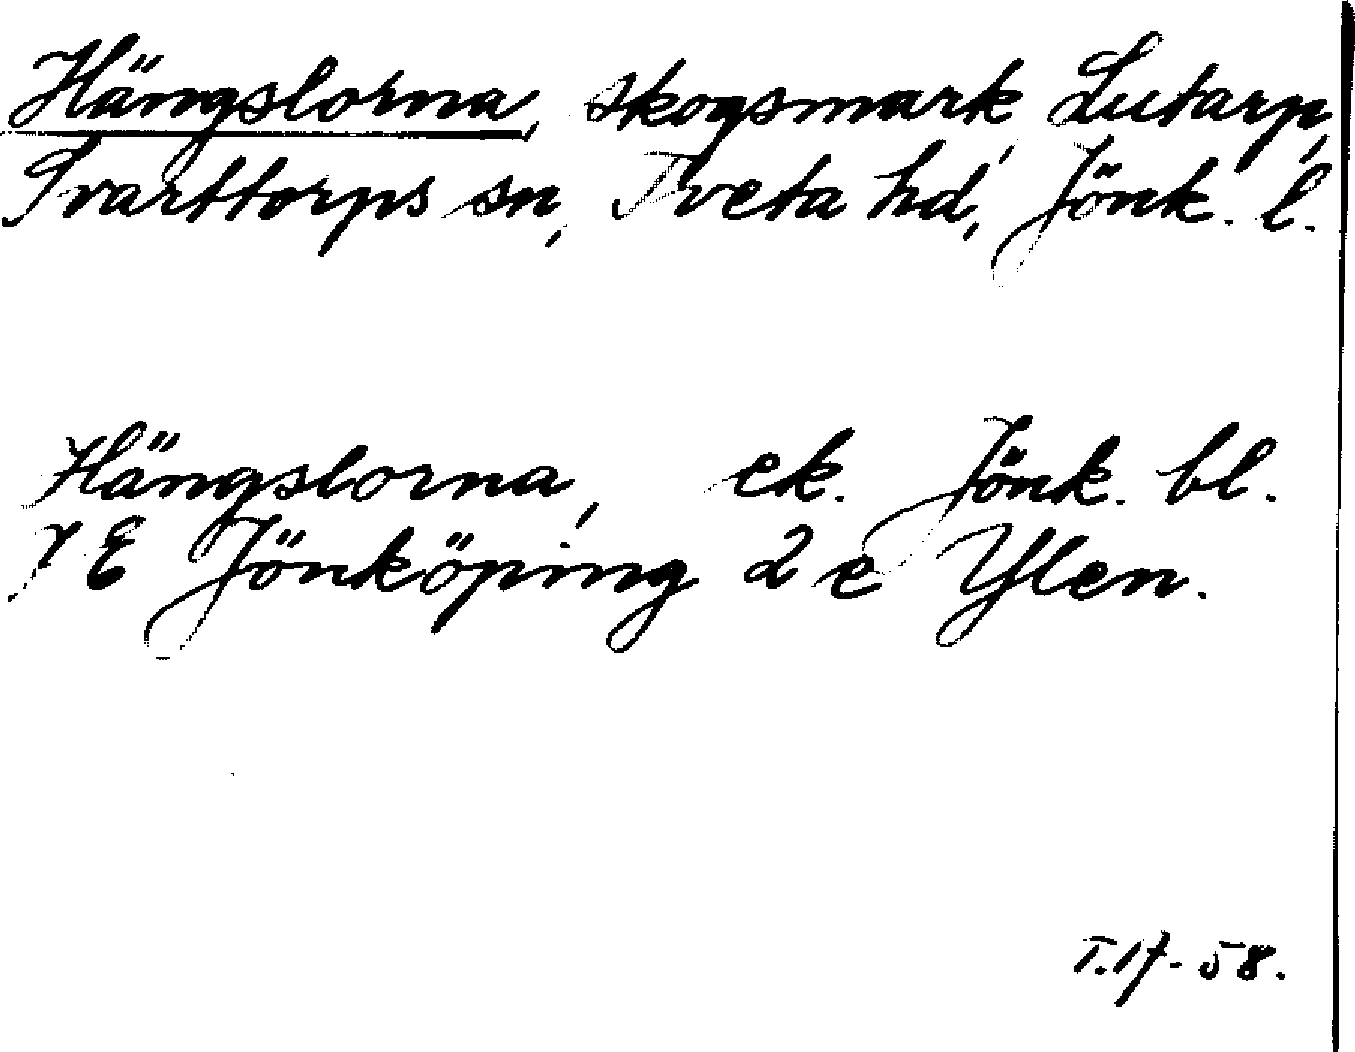 Hängslorna, skogsmark, Lutarp,
Svarttorps sn, Tveta hd, Jönk. l.
Hängslorna, ek. Jönk. bl.
7 E Jönköping 2 e Ylen.
T.17-58.